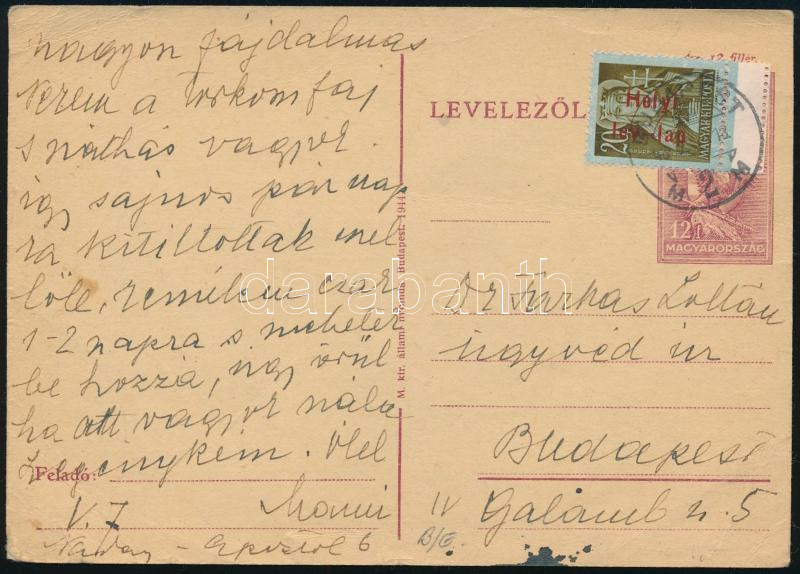 nagyon fájdalmas
Verem a torkom fáj
s náthás vagyok.
így sajnos pár nap
ra kitiltottak mel
lőle, remélem csak
1-2 napra s mehetek
be hozzá, úgy örül
ha ott vagyok nála
szegénykém. Ölel
Feladó:
V. 7 Mami
6
M. kir. állami nyomda, Budapest. 1944
Ára 12 fillér
LEVELEZŐL
Helyi
lev.-lap
20
MAGYAR KIR. POSTA
12f
MAGYARORSZÁG
Dr Farkas Zoltán
ügyvéd úr
Budapest
IV Galamb u. 5
B/E
darabanth
.com